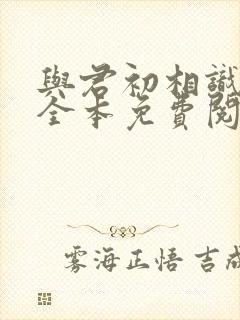 與君初相識
全本免費閱
雾海正悟 吉成